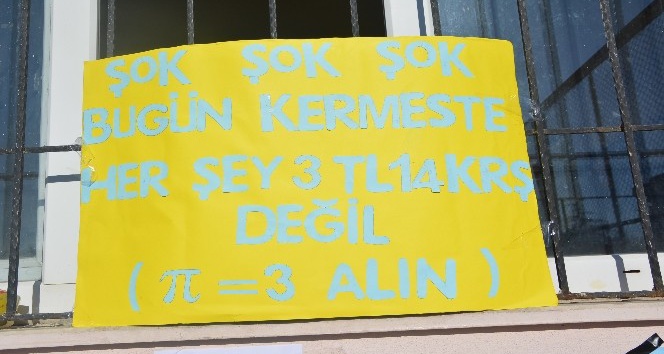 ŞOK ŞOK ŞOK
BUGÜN KERMESTE
HER ŞEY 3 TL 14 KRŞ
DEĞİL
( π = 3 ALIN )